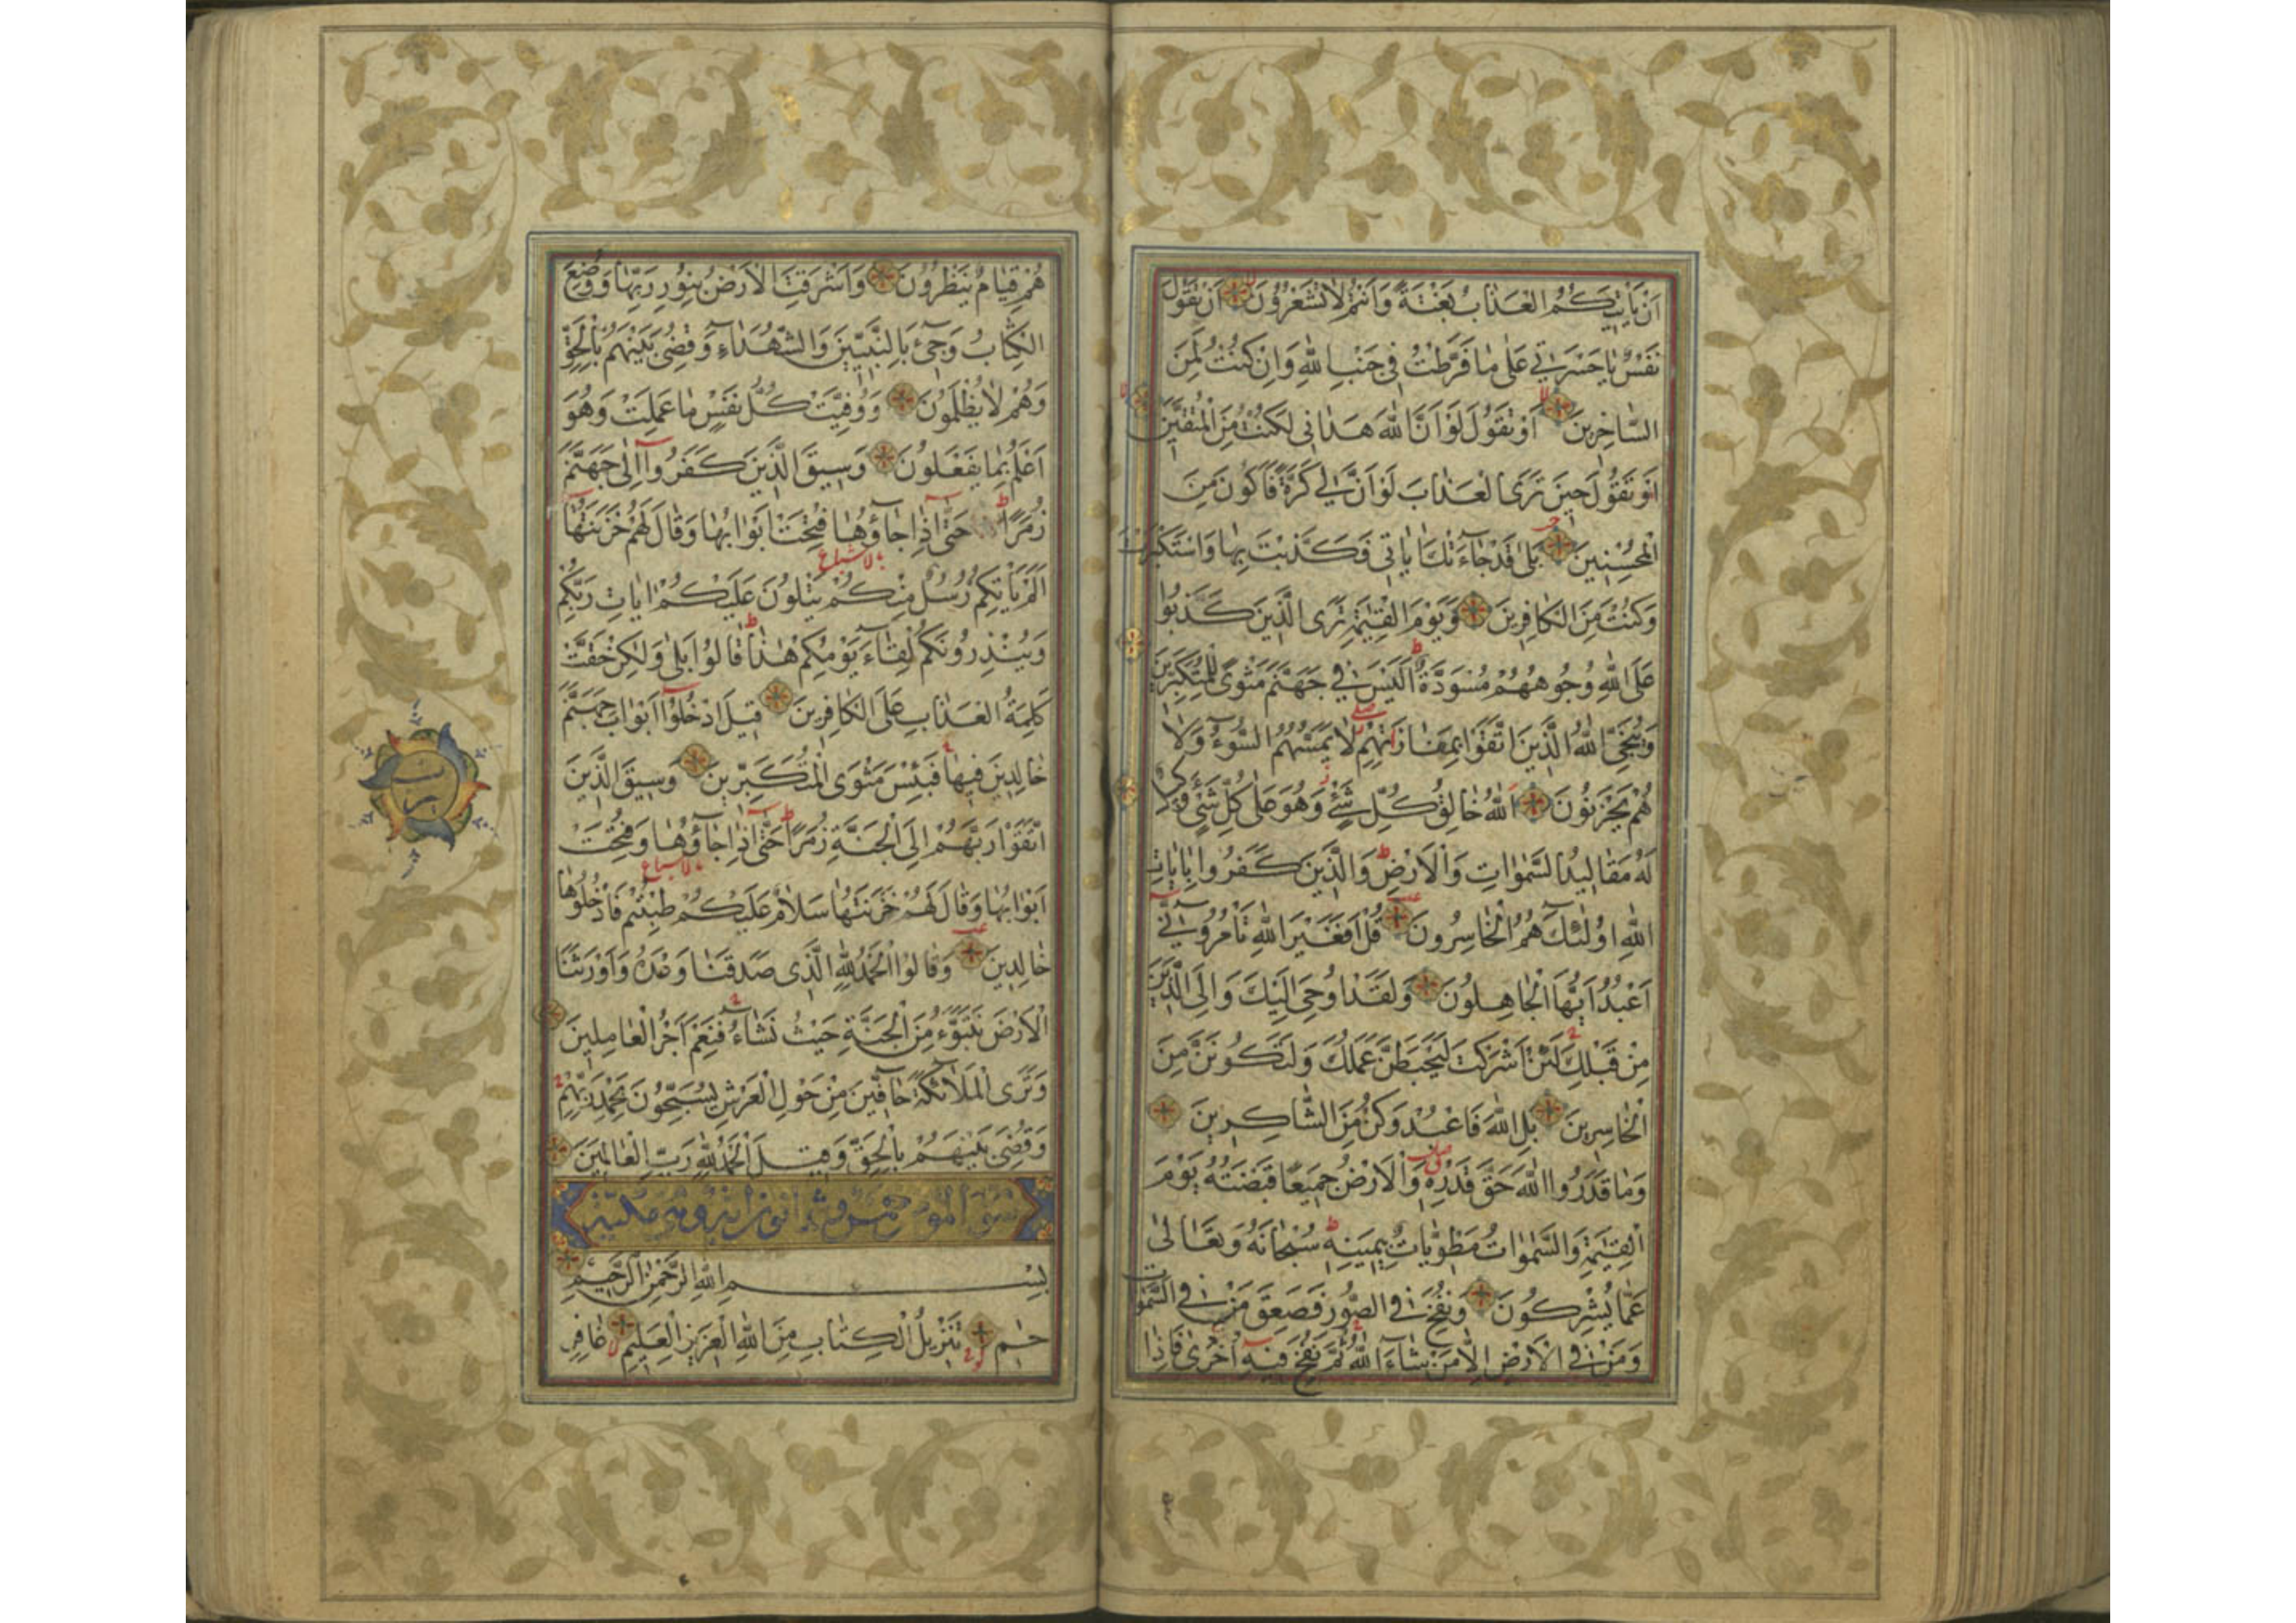 اَنْ يَأْتِيَكُمُ الْعَذَابُ بَغْتَةً وَاَنْتُمْ لَا تَشْعُرُونَ اَنْ تَقُولَ
نَفْسٌ يَا حَسْرَتٰى عَلٰى مَا فَرَّطْتُ فِي جَنْبِ اللّٰهِ وَاِنْ كُنْتُ لَمِنَ
السَّاخِرِينَ اَوْ تَقُولَ لَوْ اَنَّ اللّٰهَ هَدَانِي لَكُنْتُ مِنَ الْمُتَّقِينَ
اَوْ تَقُولَ حِينَ تَرَى الْعَذَابَ لَوْ اَنَّ لِي كَرَّةً فَاَكُونَ مِنَ
الْمُحْسِنِينَ بَلٰى قَدْ جَاءَتْكَ اٰيَاتِي فَكَذَّبْتَ بِهَا وَاسْتَكْبَرْتَ
وَكُنْتَ مِنَ الْكَافِرِينَ وَيَوْمَ الْقِيٰمَةِ تَرَى الَّذِينَ كَذَبُوا
عَلَى اللّٰهِ وُجُوهُهُمْ مُسْوَدَّةٌ اَلَيْسَ فِي جَهَنَّمَ مَثْوًى لِلْمُتَكَبِّرِينَ
وَيُنَجِّي اللّٰهُ الَّذِينَ اتَّقَوْا بِمَفَازَتِهِمْ لَا يَمَسُّهُمُ السُّوءُ وَلَا
هُمْ يَحْزَنُونَ اَللّٰهُ خَالِقُ كُلِّ شَيْءٍ وَهُوَ عَلٰى كُلِّ شَيْءٍ وَكِيلٌ
لَهُ مَقَالِيدُ السَّمٰوَاتِ وَالْاَرْضِ وَالَّذِينَ كَفَرُوا بِاٰيَاتِ
اللّٰهِ اُولٰئِكَ هُمُ الْخَاسِرُونَ قُلْ اَفَغَيْرَ اللّٰهِ تَأْمُرُونِّي
اَعْبُدُ اَيُّهَا الْجَاهِلُونَ وَلَقَدْ اُوحِيَ اِلَيْكَ وَاِلَى الَّذِينَ
مِنْ قَبْلِكَ لَئِنْ اَشْرَكْتَ لَيَحْبَطَنَّ عَمَلُكَ وَلَتَكُونَنَّ مِنَ
الْخَاسِرِينَ بَلِ اللّٰهَ فَاعْبُدْ وَكُنْ مِنَ الشَّاكِرِينَ
وَمَا قَدَرُوا اللّٰهَ حَقَّ قَدْرِهِ وَالْاَرْضُ جَمِيعًا قَبْضَتُهُ يَوْمَ
الْقِيٰمَةِ وَالسَّمٰوَاتُ مَطْوِيَّاتٌ بِيَمِينِهِ سُبْحَانَهُ وَتَعَالٰى
عَمَّا يُشْرِكُونَ وَنُفِخَ فِي الصُّورِ فَصَعِقَ مَنْ فِي السَّمٰوَاتِ
وَمَنْ فِي الْاَرْضِ اِلَّا مَنْ شَاءَ اللّٰهُ ثُمَّ نُفِخَ فِيهِ اُخْرٰى فَاِذَا
هُمْ قِيَامٌ يَنْظُرُونَ وَاَشْرَقَتِ الْاَرْضُ بِنُورِ رَبِّهَا وَوُضِعَ
الْكِتَابُ وَجِيءَ بِالنَّبِيِّينَ وَالشُّهَدَاءِ وَقُضِيَ بَيْنَهُمْ بِالْحَقِّ
وَهُمْ لَا يُظْلَمُونَ وَوُفِّيَتْ كُلُّ نَفْسٍ مَا عَمِلَتْ وَهُوَ
اَعْلَمُ بِمَا يَفْعَلُونَ وَسِيقَ الَّذِينَ كَفَرُوا اِلٰى جَهَنَّمَ
زُمَرًا حَتّٰى اِذَا جَاؤُهَا فُتِحَتْ اَبْوَابُهَا وَقَالَ لَهُمْ خَزَنَتُهَا
اَلَمْ يَأْتِكُمْ رُسُلٌ مِنْكُمْ يَتْلُونَ عَلَيْكُمْ اٰيَاتِ رَبِّكُمْ
وَيُنْذِرُونَكُمْ لِقَاءَ يَوْمِكُمْ هٰذَا قَالُوا بَلٰى وَلٰكِنْ حَقَّتْ
كَلِمَةُ الْعَذَابِ عَلَى الْكَافِرِينَ قِيلَ ادْخُلُوا اَبْوَابَ جَهَنَّمَ
خَالِدِينَ فِيهَا فَبِئْسَ مَثْوَى الْمُتَكَبِّرِينَ وَسِيقَ الَّذِينَ
اتَّقَوْا رَبَّهُمْ اِلَى الْجَنَّةِ زُمَرًا حَتّٰى اِذَا جَاؤُهَا وَفُتِحَتْ
اَبْوَابُهَا وَقَالَ لَهُمْ خَزَنَتُهَا سَلَامٌ عَلَيْكُمْ طِبْتُمْ فَادْخُلُوهَا
خَالِدِينَ وَقَالُوا الْحَمْدُ لِلّٰهِ الَّذِي صَدَقَنَا وَعْدَهُ وَاَوْرَثَنَا
الْاَرْضَ نَتَبَوَّءُ مِنَ الْجَنَّةِ حَيْثُ نَشَاءُ فَنِعْمَ اَجْرُ الْعَامِلِينَ
وَتَرَى الْمَلَائِكَةَ حَافِّينَ مِنْ حَوْلِ الْعَرْشِ يُسَبِّحُونَ بِحَمْدِ رَبِّهِمْ
وَقُضِيَ بَيْنَهُمْ بِالْحَقِّ وَقِيلَ الْحَمْدُ لِلّٰهِ رَبِّ الْعَالَمِينَ
بِسْمِ اللّٰهِ الرَّحْمٰنِ الرَّحِيمِ
حٰم تَنْزِيلُ الْكِتَابِ مِنَ اللّٰهِ الْعَزِيزِ الْعَلِيمِ غَافِرِ